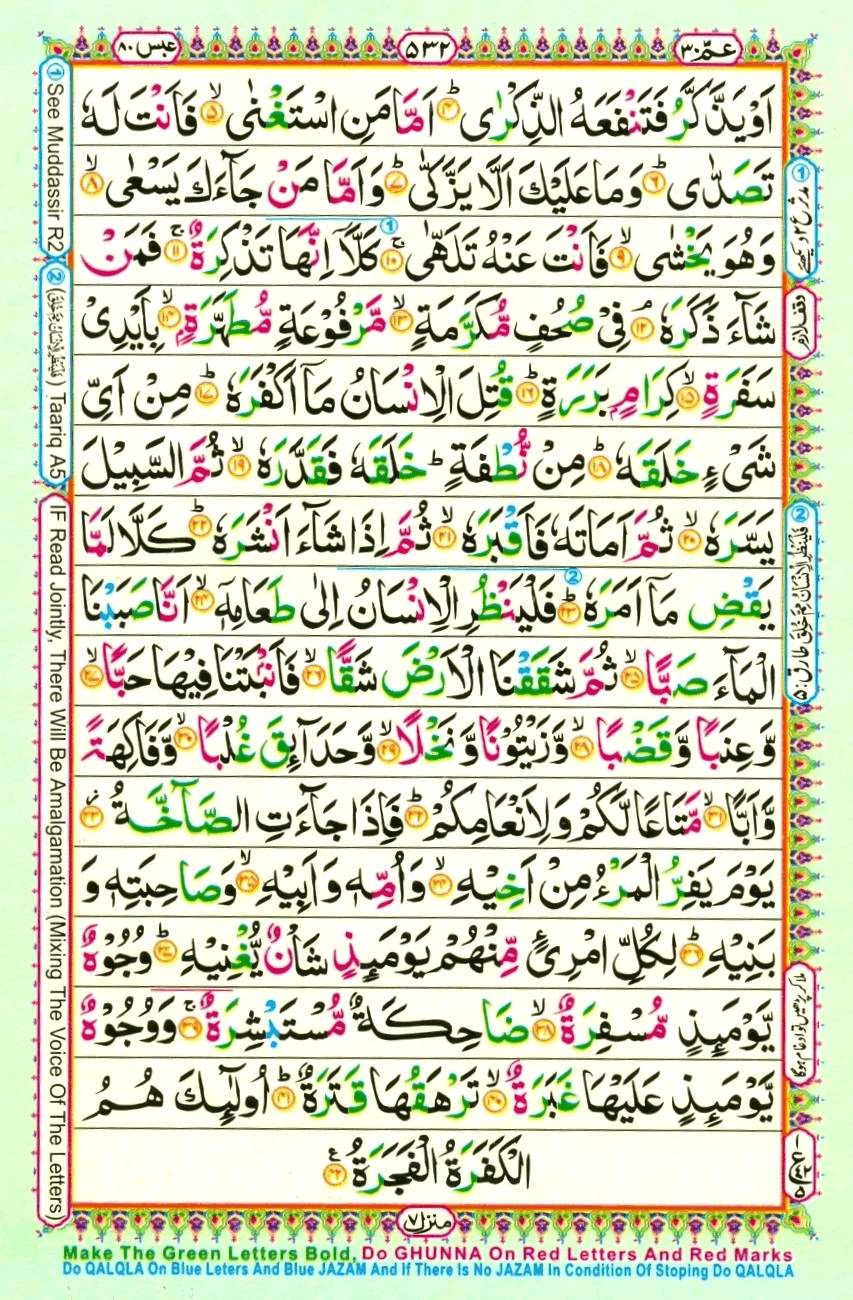 عَمَّ ٣٠
٥٣٢
عبس ٨٠
اَوۡ يَذَّكَّرُ فَتَنۡفَعَهُ الذِّكۡرٰى ؕ‏ ﴿۴﴾ اَمَّا مَنِ اسۡتَغۡنٰى ۙ‏ ﴿۵﴾ فَاَنۡتَ لَهٗ
تَصَدّٰى ؕ‏ ﴿۶﴾ وَمَا عَلَيۡكَ اَلَّا يَزَّكّٰى ؕ‏ ﴿۷﴾ وَاَمَّا مَنۡ جَآءَكَ يَسۡعٰى ۙ‏ ﴿۸﴾
وَهُوَ يَخۡشٰى ۙ‏ ﴿۹﴾ فَاَنۡتَ عَنۡهُ تَلَهّٰى‌ ۚ‏ ﴿۱۰﴾ كَلَّاۤ اِنَّهَا تَذۡكِرَةٌ ۚ‏ ﴿۱۱﴾ فَمَنۡ
شَآءَ ذَكَرَهٗ‌ۘ‏ ﴿۱۲﴾ فِىۡ صُحُفٍ مُّكَرَّمَةٍ ۙ‏ ﴿۱۳﴾ مَّرۡفُوۡعَةٍ مُّطَهَّرَةٍ ۙ‏ ﴿۱۴﴾ بِاَيۡدِىۡ
سَفَرَةٍ ۙ‏ ﴿۱۵﴾ كِرَامٍۢ بَرَرَةٍ ؕ‏ ﴿۱۶﴾ قُتِلَ الۡاِنۡسَانُ مَاۤ اَكۡفَرَهٗ ؕ‏ ﴿۱۷﴾ مِنۡ اَىِّ
شَىۡءٍ خَلَقَهٗ ؕ‏ ﴿۱۸﴾ مِنۡ نُّطۡفَةٍ ؕ خَلَقَهٗ فَقَدَّرَهٗ ۙ‏ ﴿۱۹﴾ ثُمَّ السَّبِيۡلَ
يَسَّرَهٗ ۙ‏ ﴿۲۰﴾ ثُمَّ اَمَاتَهٗ فَاَقۡبَرَهٗ ۙ‏ ﴿۲۱﴾ ثُمَّ اِذَا شَآءَ اَنۡشَرَهٗ ؕ‏ ﴿۲۲﴾ كَلَّا لَمَّا
يَقۡضِ مَاۤ اَمَرَهٗ ؕ‏ ﴿۲۳﴾ فَلۡيَنۡظُرِ الۡاِنۡسَانُ اِلٰى طَعَامِهٖۤ ۙ‏ ﴿۲۴﴾ اَنَّا صَبَبۡنَا
الۡمَآءَ صَبًّا ۙ‏ ﴿۲۵﴾ ثُمَّ شَقَقۡنَا الۡاَرۡضَ شَقًّا ۙ‏ ﴿۲۶﴾ فَاَنۡۢبَتۡنَا فِيۡهَا حَبًّا ۙ‏ ﴿۲۷﴾
وَّ عِنَبًا وَّقَضۡبًا ۙ‏ ﴿۲۸﴾ وَّزَيۡتُوۡنًا وَّنَخۡلًا ۙ‏ ﴿۲۹﴾ وَّحَدَآئِقَ غُلۡبًا ۙ‏ ﴿۳۰﴾ وَّفَاكِهَةً
وَّاَبًّا ۙ‏ ﴿۳۱﴾ مَّتَاعًا لَّكُمۡ وَلِاَنۡعَامِكُمۡ ؕ‏ ﴿۳۲﴾ فَاِذَا جَآءَتِ الصَّآخَّةُ ‏ ﴿۳۳﴾
يَوۡمَ يَفِرُّ الۡمَرۡءُ مِنۡ اَخِيۡهِ ۙ‏ ﴿۳۴﴾ وَاُمِّهٖ وَاَبِيۡهِ ۙ‏ ﴿۳۵﴾ وَصَاحِبَتِهٖ وَ
بَنِيۡهِ ؕ‏ ﴿۳۶﴾ لِكُلِّ امۡرِىٴٍ مِّنۡهُمۡ يَوۡمَئِذٍ شَاۡنٌ يُّغۡنِيۡهِ ؕ‏ ﴿۳۷﴾ وُجُوۡهٌ
يَّوۡمَئِذٍ مُّسۡفِرَةٌ ۙ‏ ﴿۳۸﴾ ضَاحِكَةٌ مُّسۡتَبۡشِرَةٌ ۚ‏ ﴿۳۹﴾ وَوُجُوۡهٌ
يَّوۡمَئِذٍ عَلَيۡهَا غَبَرَةٌ ۙ‏ ﴿۴۰﴾ تَرۡهَقُهَا قَتَرَةٌ ؕ‏ ﴿۴۱﴾ اُولٰٓئِكَ هُمُ
الۡكَفَرَةُ الۡفَجَرَةُ ‏ ﴿۴۲﴾ ع
① مدثر ع ۲ دیکھئے
وقف لازم
② فَلْيَنْظُرِ الْاِنْسَانُ مِمَّ خُلِقَ طارق : ۵
ملا کر پڑھیں تو ادغام ہوگا
① See Muddassir R2
② (فَلْيَنْظُرِ الْاِنْسَانُ مِمَّ خُلِقَ) Taariq A5
IF Read Jointly, There Will Be Amalgamation (Mixing The Voice Of The Letters)
منزل ٧
Make The Green Letters Bold, Do GHUNNA On Red Letters And Red Marks
Do QALQLA On Blue Leters And Blue JAZAM And If There Is No JAZAM In Condition Of Stoping Do QALQLA